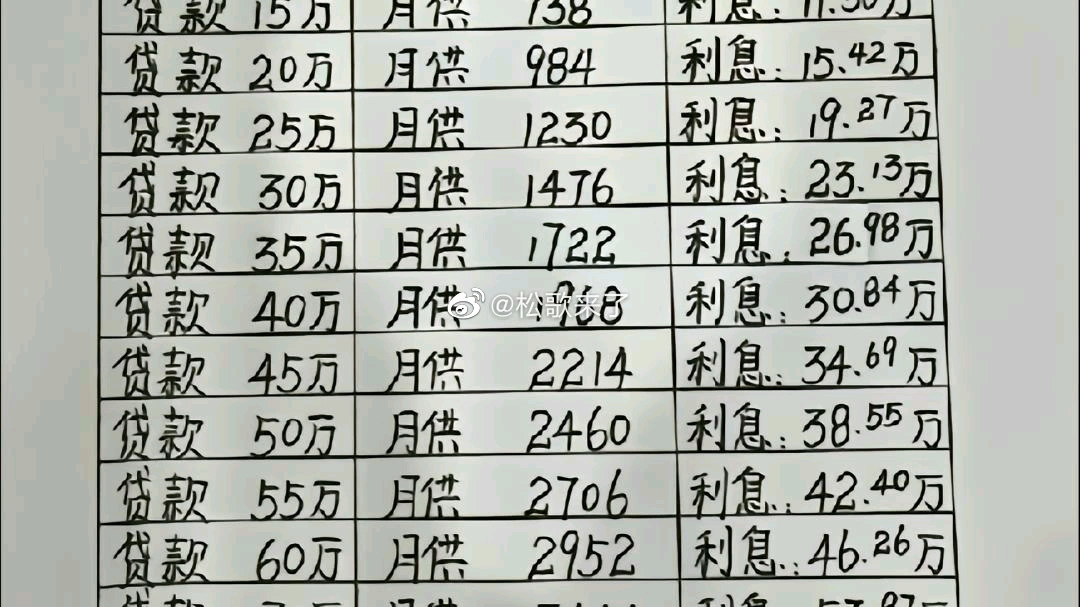 贷款 15万 月供 738 利息:11.56万
贷款 20万 月供 984 利息:15.42万
贷款 25万 月供 1230 利息:19.27万
贷款 30万 月供 1476 利息:23.13万
贷款 35万 月供 1722 利息:26.98万
贷款 40万 月供 1968 利息:30.84万
@松歌来了
贷款 45万 月供 2214 利息:34.69万
贷款 50万 月供 2460 利息:38.55万
贷款 55万 月供 2706 利息:42.40万
贷款 60万 月供 2952 利息:46.26万